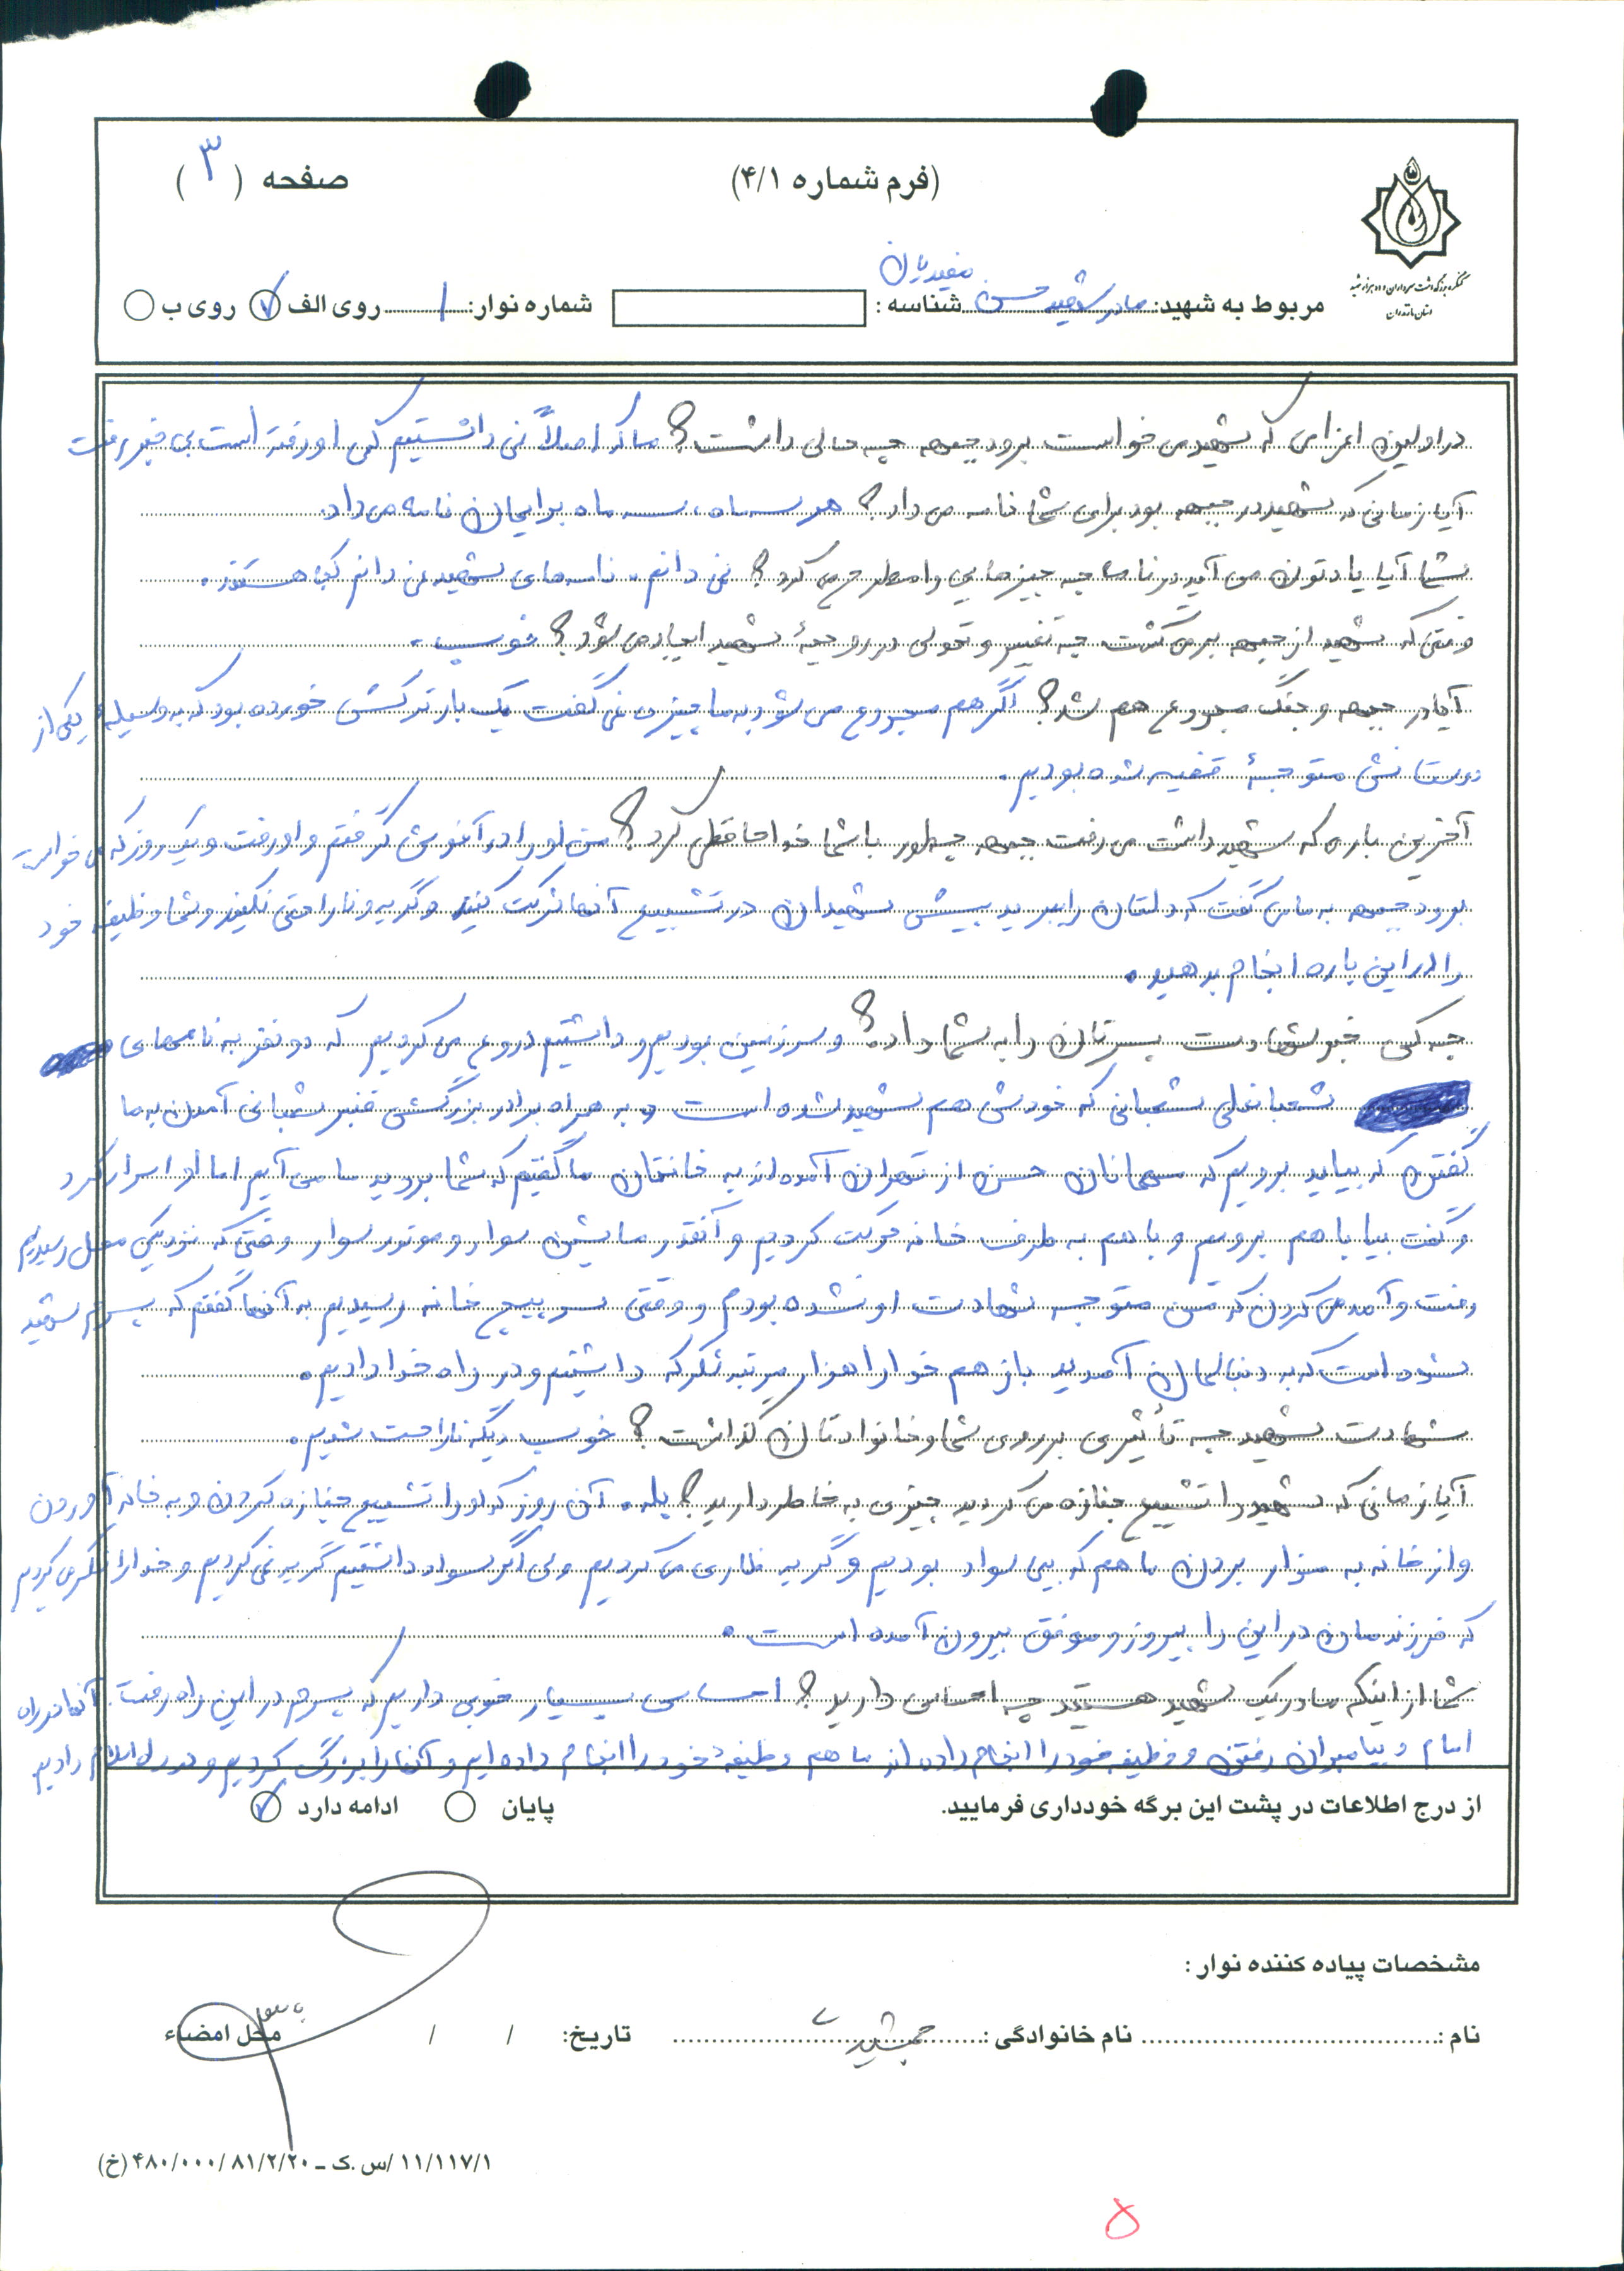 (فرم شماره ۴/۱)
صفحه (۳)
کنگره بزرگداشت سرداران و ده هزار شهید
استان مازندران
مفیدیان
مربوط به شهید: مادر شهید حسن شناسه: شماره نوار: ۱ روی الف روی ب
در اولین اعزامی که شهید می خواست برود جبهه چه حالی داشت؟ ما که اصلاً نمی دانستیم کی او رفته است بی خبر رفت
آیا زمانی که شهید در جبهه بود برای شما نامه می داد؟ هر سه ماه، سه ماه برایمان نامه می داد.
شما آیا یادتون می آید در نامه چه چیزهایی را مطرح می کرد؟ نمی دانم. نامه های شهید نمی دانم کجا هستند.
وقتی که شهید از جبهه بر می گشت چه تغییر و تحولی در روحیهٔ شهید ایجاد می شود؟ خوب.
آیا در جبهه و جنگ مجروع هم شد؟ اگر هم مجروع می شود به ما چیزی نمی گفت یک بار ترکش خورده بود که به وسیله یکی از
دوستانش متوجهٔ قضیه شده بودیم.
آخرین باره که شهید داشت می رفت جبهه چطور با شما خداحافظی کرد؟ من او را در آغوش گرفتم و او رفت و یک روز که می خواست
برود جبهه به ما می گفت که دلتان را ببرید پیش شهیدان در تشییع آنها شرکت کنید و گریه و ناراحتی نکنید و شما وظیفه خود
را در این باره انجام بدهید.
چه کسی خبر شهادت پسرتان را به شما داد؟ و سر زمین بودیم و داشتیم دروع می کردیم که دو نفر به نامهای
شعبانعلی شعبانی که خودش هم شهید شده است و به همراه برادر بزرگش قنبر شعبانی آمدن به ما
گفتن که بیاید برویم که مهمانان حسن از تهران آمده اند به خانتان ما گفتیم که شما بروید ما می آیم اما او اسرار کرد
و گفت بیا با هم برویم و با هم به طرف خانه حرکت کردیم و آنقدر ماشین سوار و موتور سوار وقتی که نزدیکی محل رسیدیم
رفت و آمد می کردن که من متوجه شهادت او نشده بودم و وقتی سر پیچ خانه رسیدیم به آنها گفتم که پسرم شهید
شده است که به دنبالمان آمدید باز هم خدا را هزار مرتبه شکر که داشتیم و در راه خدا دادیم.
شهادت شهید چه تأثیری بر روی شما و خانوادتان گذاشت؟ خوب دیگه ناراحت شدیم.
آیا زمانی که شهید را تشییع جنازه می کردید چیزی به خاطر دارید؟ بله. آن روز که او را تشییع جنازه کردن و به خانه آوردن
و از خانه به مزار بردن ما هم که بی سواد بودیم و گریه ظاری می کردیم ولی اگر سواد داشتیم گریه نمی کردیم و خدا را شکر می کردیم
که فرزندمان در این را پیروز و موفق بیرون آمده است.
شما از اینکه مادر یک شهید هستید چه احساسی دارید؟ احساسی بسیار خوبی داریم که پسرم در این راه رفت. آنها در راه
امام و پیامبران رفتن و وظیفه خود را انجام داده اند ما هم وظیفهٔ خود را انجام داده ایم و آنها را بزرگ کردیم و در راه اسلام دادیم
از درج اطلاعات در پشت این برگه خودداری فرمایید.
پایان ادامه دارد
مشخصات پیاده کننده نوار:
نام: نام خانوادگی: جمشیدی تاریخ: / / محل امضاء
۱۱/۱۱۷/۱ /س.ک ـ ۴۸۰/۰۰۰/۸۱/۲/۲۰ (خ)
۵